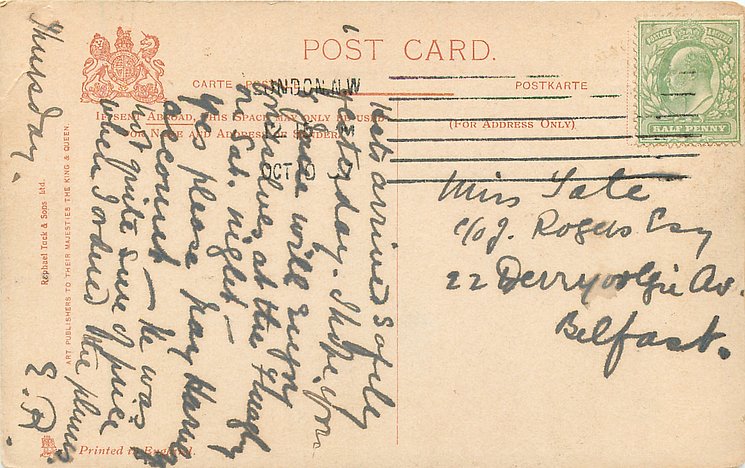 POST CARD.
CARTE POSTALE
POSTKARTE
IF SENT ABROAD, THIS SPACE MAY ONLY BE USED
FOR NAME AND ADDRESS OF SENDER.
(FOR ADDRESS ONLY)
LONDON. N.W
OCT 10
POSTAGE & REVENUE
HALF PENNY
Miss Tate
c/o J. Rogers Esq
22 Derryvolgie Av.
Belfast.
Thursday.
Hats arrived safely
yesterday. I hope you
& Grace will enjoy
yourselves at the
on Sat. night—
Yes please pay
account — he was
not quite sure of price
when I ordered the plums.
E.R.
Raphael Tuck & Sons Ltd.
ART PUBLISHERS TO THEIR MAJESTIES THE KING & QUEEN
Printed in England.